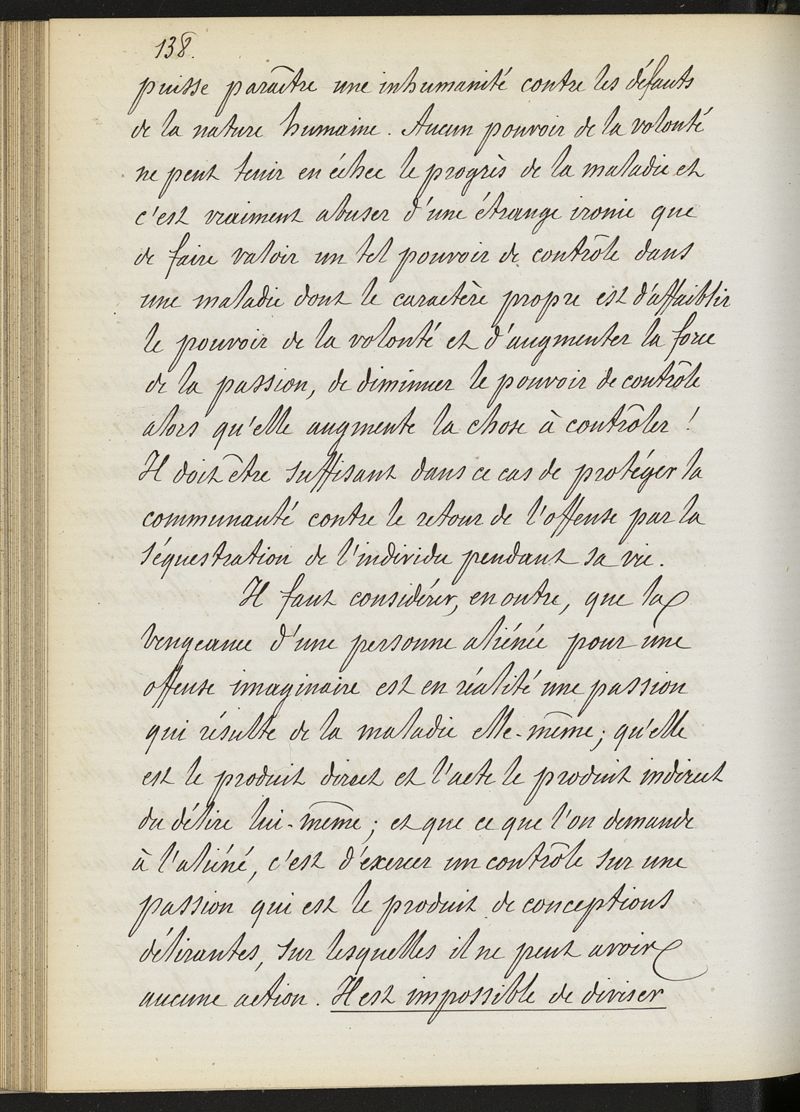 138.
puisse paraître une inhumanité contre les défauts
de la nature humaine. Aucun pouvoir de la volonté
ne peut tenir en échec le progrès de la maladie et
c'est vraiment abuser d'une étrange ironie que
de faire valoir un tel pouvoir de contrôle dans
une maladie dont le caractère propre est d'affaiblir
le pouvoir de la volonté et d'augmenter la force
de la passion, de diminuer le pouvoir de contrôle
alors qu'elle augmente la chose à contrôler !
Il doit être suffisant dans ce cas de protéger la
communauté contre le retour de l'offense par la
séquestration de l'individu pendant sa vie.
Il faut considérer, en outre, que la
vengeance d'une personne aliénée pour une
offense imaginaire est en réalité une passion
qui résulte de la maladie elle-même; qu'elle
est le produit direct et l'acte le produit indirect
du délire lui-même; et que ce que l'on demande
à l'aliéné, c'est d'exercer un contrôle sur une
passion qui est le produit de conceptions
délirantes, sur lesquelles il ne peut avoir
aucune action. Il est impossible de diviser